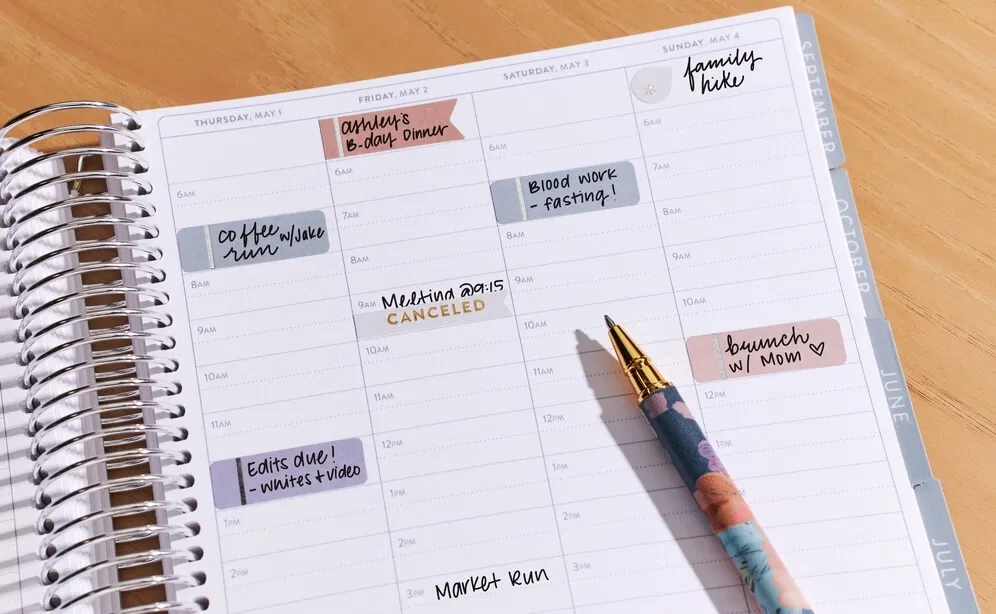 THURSDAY, MAY 1
6AM
coffee w/Jake
run
8AM
9AM
10AM
11AM
Edits due!
- whites + video
1PM
2PM
FRIDAY, MAY 2
ashley's
B-day Dinner
6AM
7AM
8AM
9AM Meeting @9:15
CANCELED
10AM
11AM
12PM
1PM
2PM
3PM Market Run
SATURDAY, MAY 3
6AM
Blood work
- fasting!
8AM
9AM
10AM
11AM
12PM
1PM
2PM
3PM
SUNDAY, MAY 4
family
hike
6AM
7AM
8AM
9AM
10AM
brunch
w/ Mom ♡
12PM
1PM
SEPTEMBER
OCTOBER
JUNE
JULY